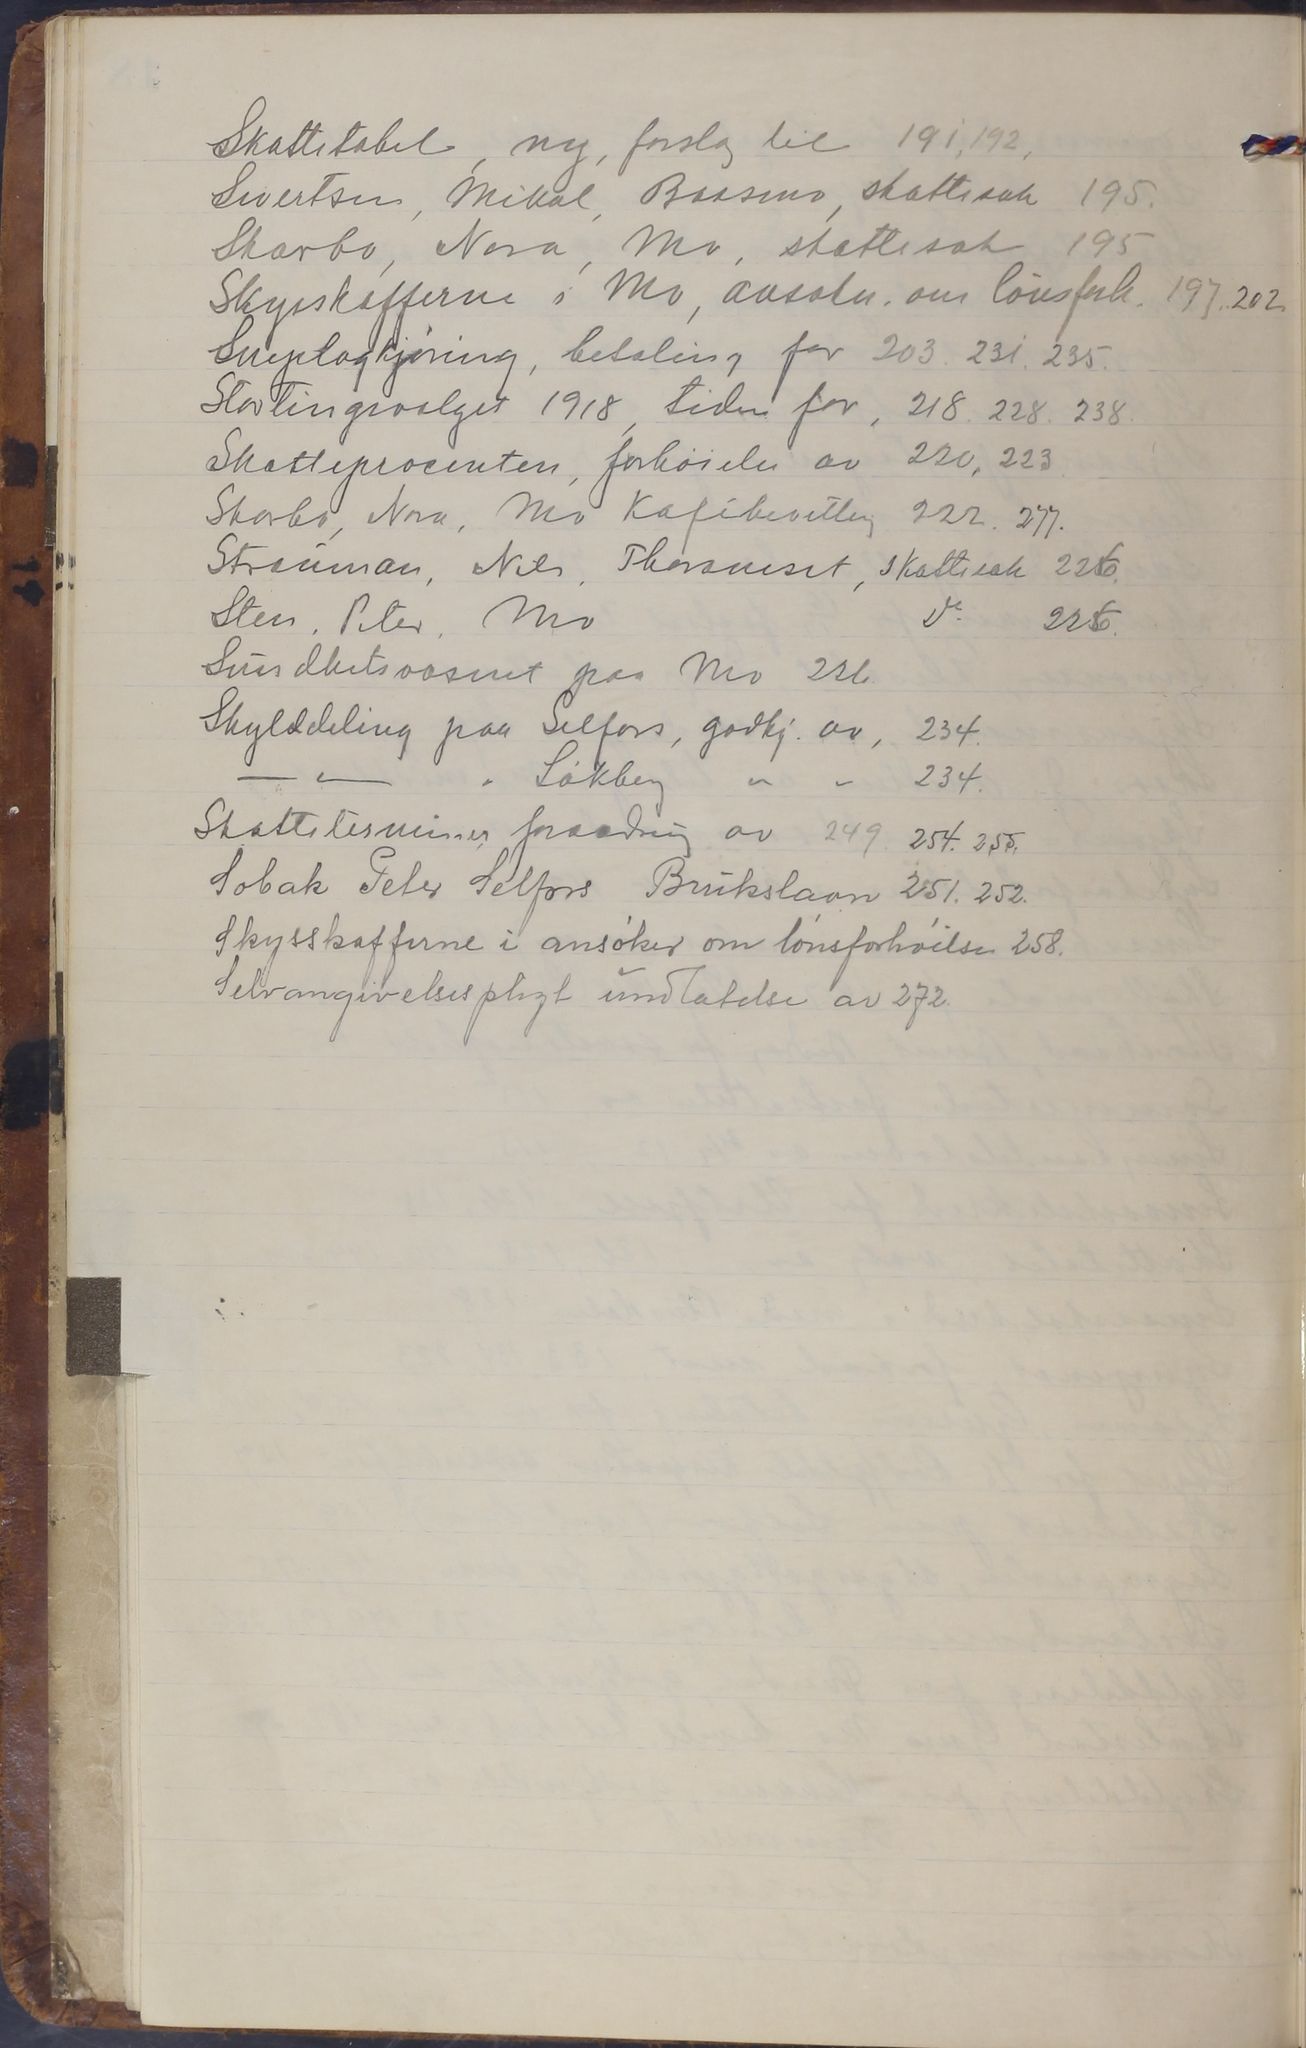 Skattetabel, ny, forslag til 191, 192,
Sivertsen, Mikal, Baasmo, skattesak 195.
Skarbø, Nora, Mo, skattesak 195
Skysskafferne i Mo, ansøkn. om lønsforh. 197. 202
Sneplogkjøring, betaling for 203. 231. 235.
Stortingsvalget 1918, tiden for, 218. 228. 238.
Skatteprocenten, forhøielse av 220, 223
Skarbø, Nora, Mo Kafébevilling 222. 277.
Strauman, Nils, Thoraneset, skattesak 226.
Sten, Peter, Mo do. 226.
Sundhetsvæsenet paa Mo 226.
Skylddeling paa Selfors, godkj. av, 234.
— " — " Søkberg " " 234.
Skatteterminer forandring av 249. 254. 255.
Sobak Peter Selfors Brukslaan 251. 252.
Skysskafferne i ansøker om lønsforhøielse 258.
Selvangivelsesplygt undlatelse av 272.